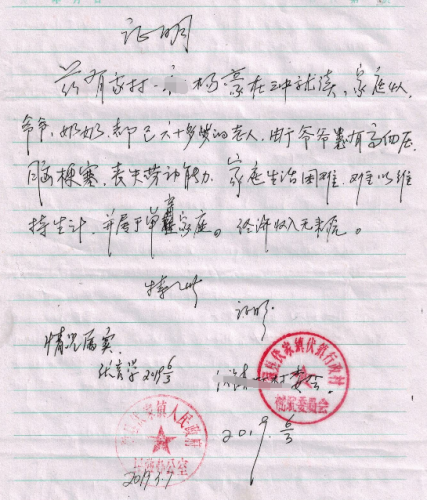 证明
兹有家村 杨豪在三中就读,家庭以
爷爷,奶奶,都已六十多岁的老人,由于爷爷患有高血压
脑梗塞,丧失劳动能力,家庭生活困难,难以维
持生计,并属于单亲家庭。经济收入无来源。
特此
证明
情况属实
2019 6/3
村委会
2019. 6/3
伏家镇伏镇行政村
村民委员会
伏家镇人民政府
办公室